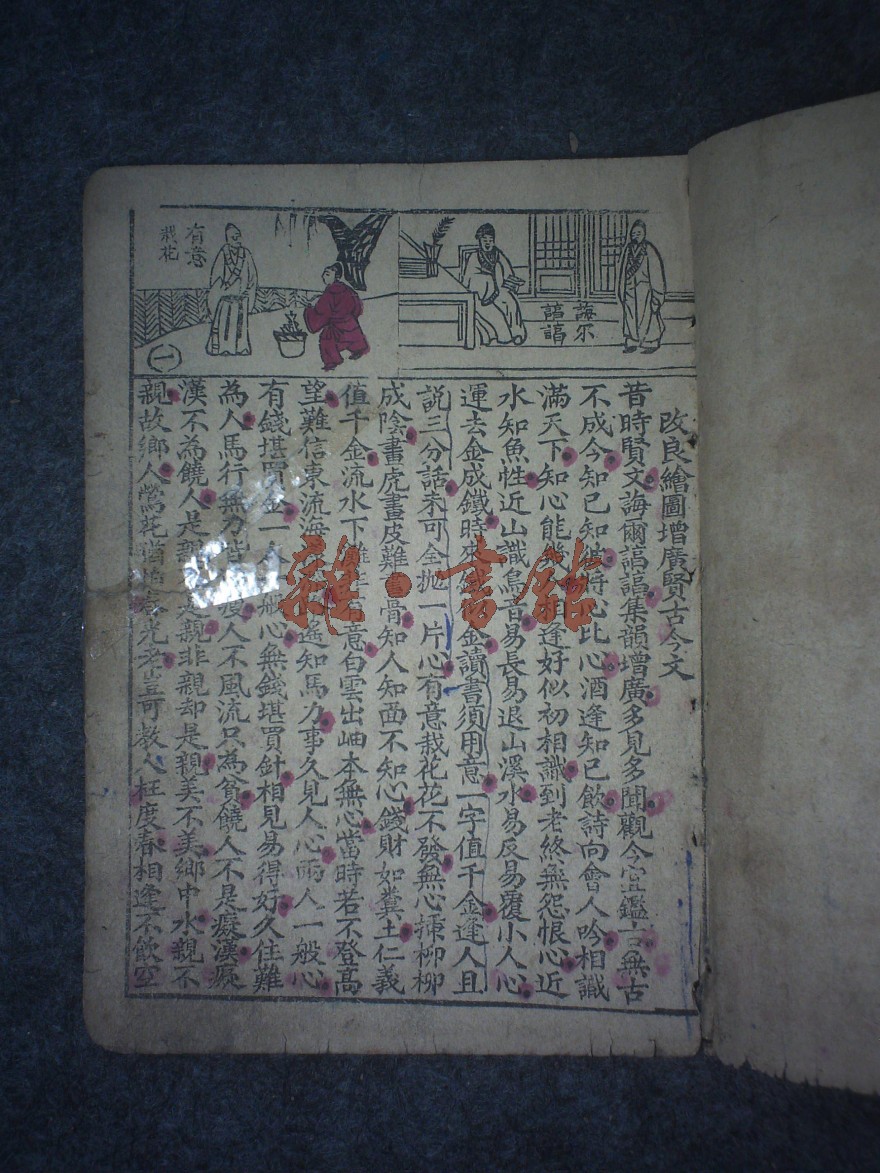 誨爾
諄諄
有意
栽花
一
改良繪圖增廣賢古今文
昔時賢文誨爾諄諄集韻增廣多見多聞觀今宜鑑古無古
不成今知已知彼將心比心酒逢知已飲詩向會人吟相識
滿天下知心能幾人相逢好似初相識到老終無怨恨心近
水知魚性近山識鳥音易長易退山溪水易反易覆小人心
運去金成鐵時來鐵似金讀書須用意一字值千金逢人且
説三分話未可全抛一片心有意栽花花不發無心揷柳柳
成陰畫虎畫皮難畫骨知人知面不知心錢財如糞土仁義
值千金流水下灘非有意白雲出岫本無心當時若不登高
望難信東流海遙知馬力事久見人心兩人一般心
有錢堪買金一人般心無錢堪買針相見易得好久住難
為人馬行無力皆瘦人不風流只為貧饒人不是癡漢癡
漢不為饒人是親是親非親却是親美不美鄉中水親不
親故鄉人鶯花猶怕春光老豈可教人枉度春相逢不飲空
雜·書館